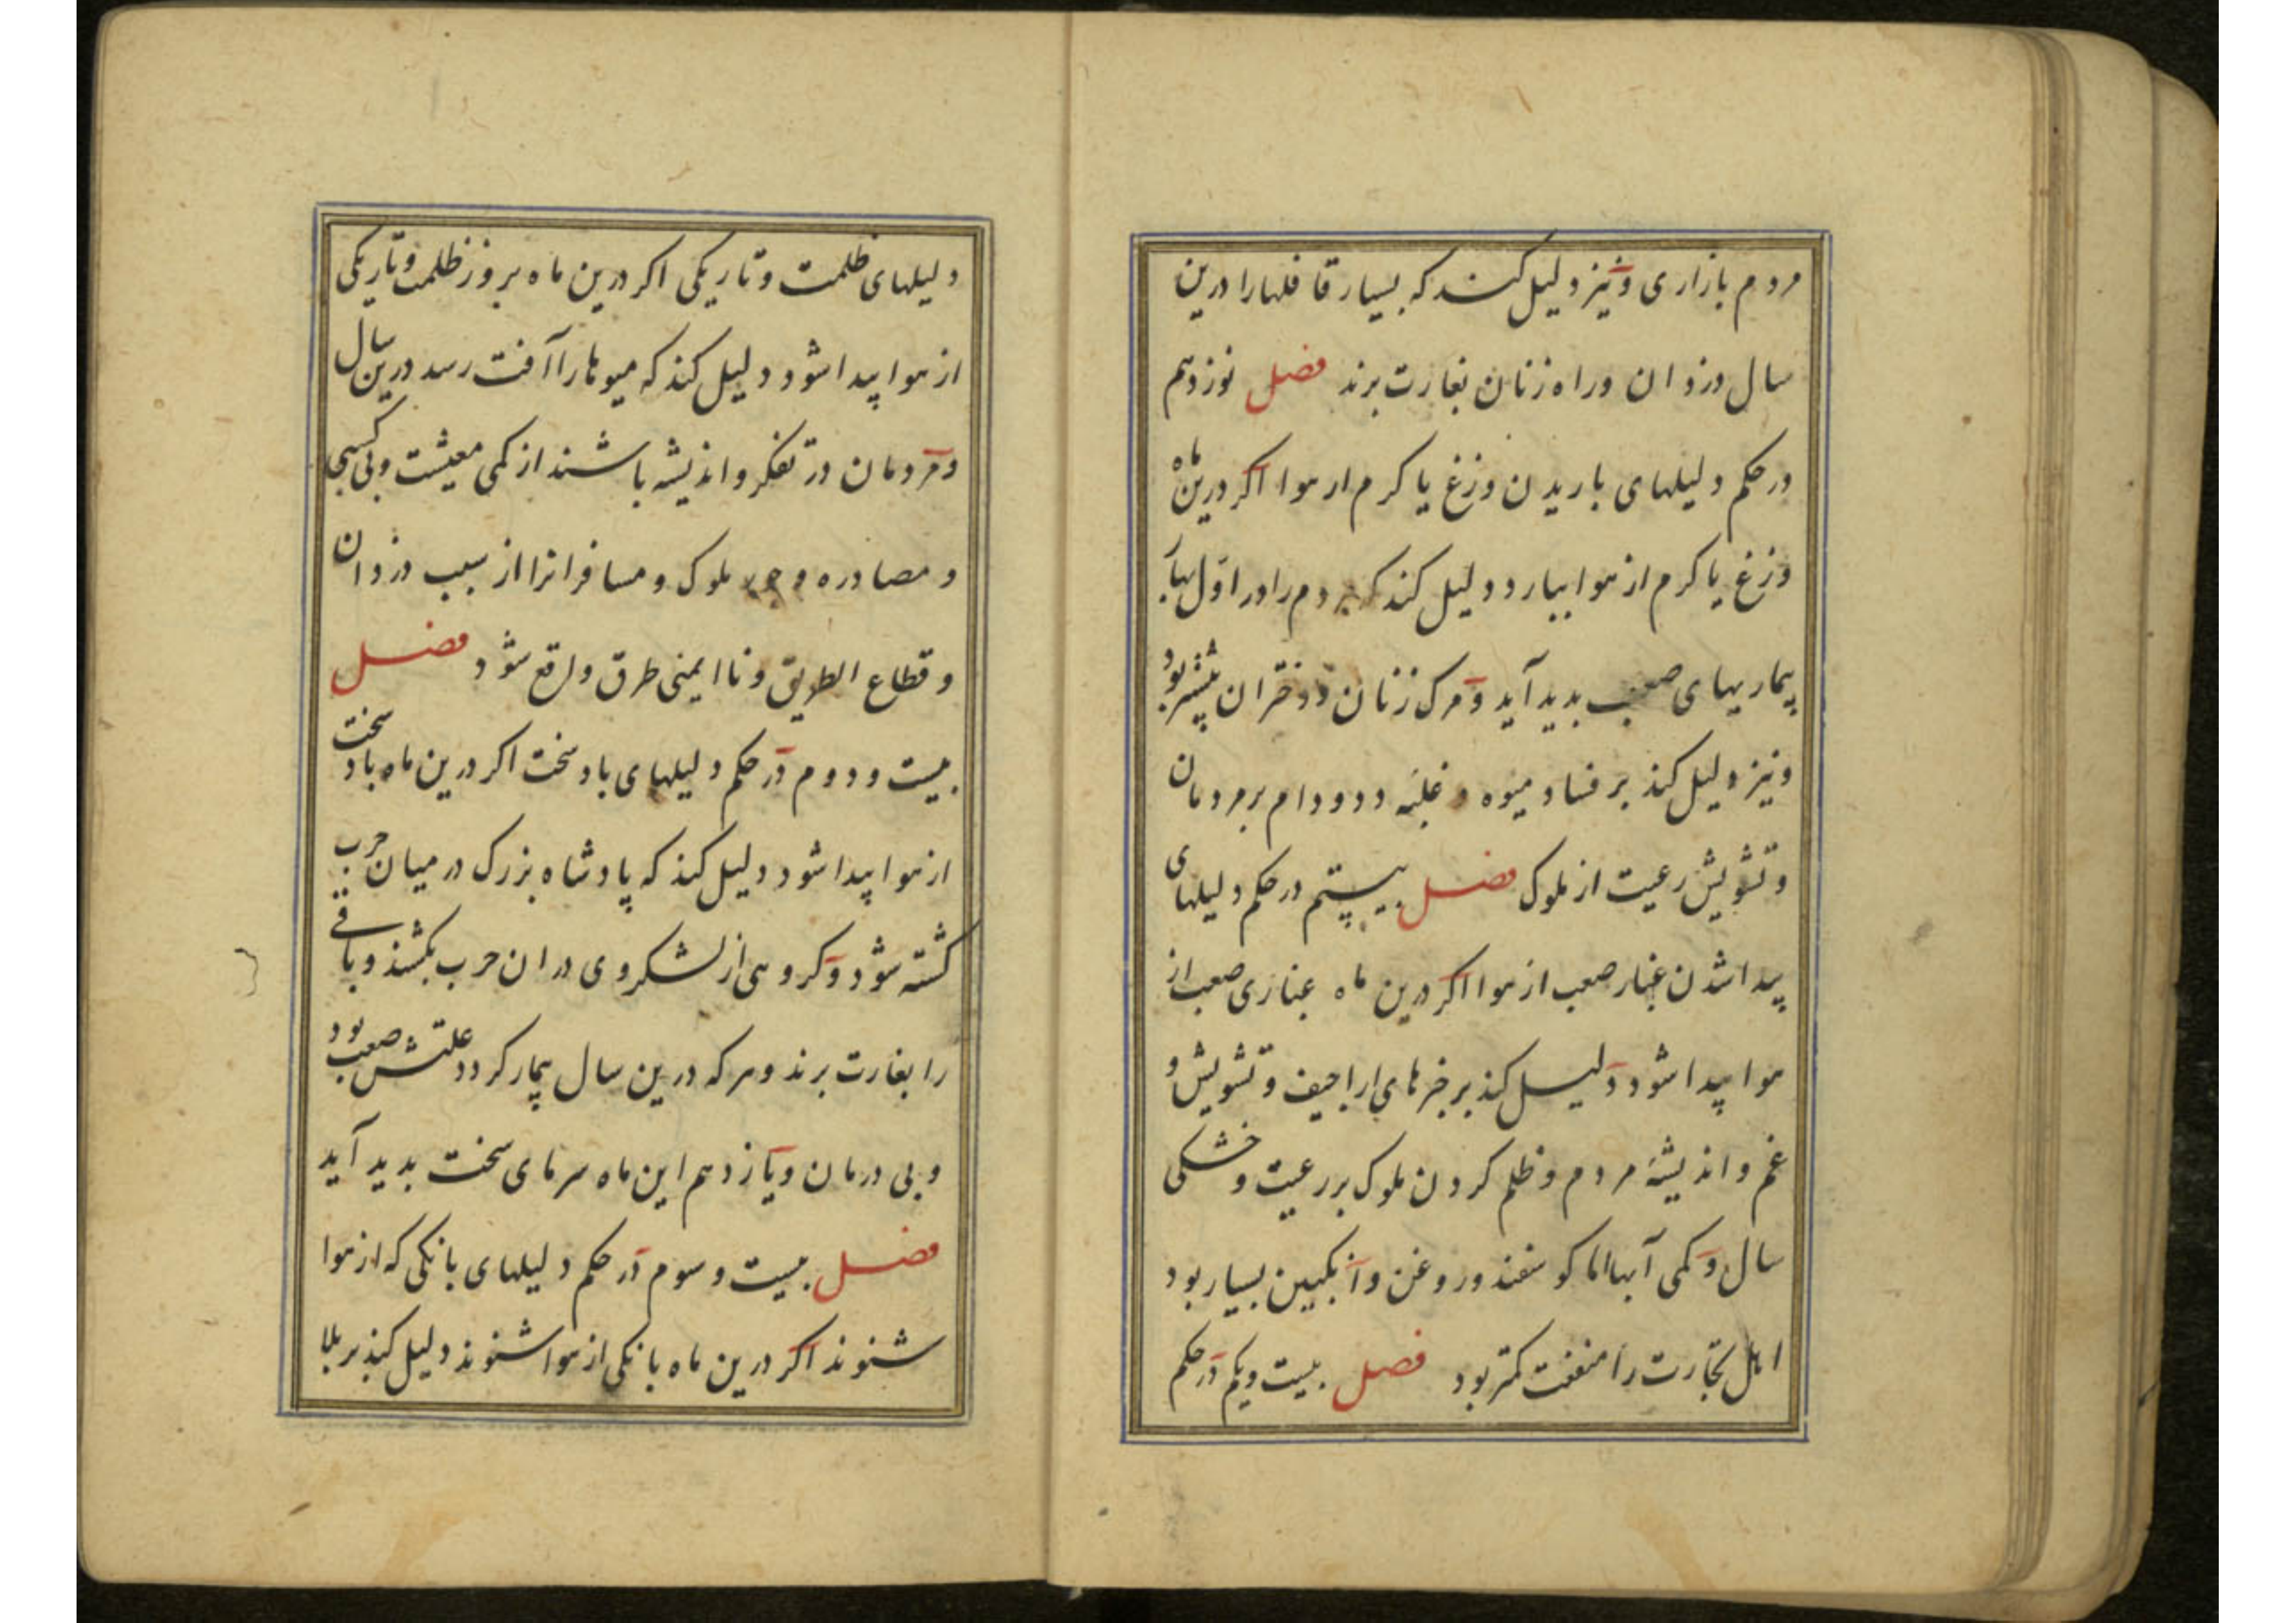 مردم بازاری و نیز دلیل کند که بسیار قافلها را درین
سال دزدان و راه زنان بغارت برند فصل نوزدهم
در حکم دلیلهای باریدن وزغ یا کرم از هوا اکر درین ماه
وزغ یا کرم از هوا ببارد دلیل کند که مردم را در اوّل بهار
بیماریهای صعب بدید آید و مرک زنان و دختران بیشتر بود
و نیز دلیل کند بر فساد میوه و غلبهٔ دد و دام بر مردمان
و تشویش رعیت از ملوک فصل بیستم در حکم دلیلهای
پیدا شدن غبار صعب از هوا اکر درین ماه غباری صعب از
هوا پیدا شود دلیل کند بر خبرهای اراجیف و تشویش و
غم و اندیشهٔ مردم و ظلم کردن ملوک بر رعیت و خشکی
سال و کمی آبها اما کوسفند و روغن و آنکبین بسیار بود
اهل تجارت را منفعت کمتر بود فصل بیست و یکم در حکم
دلیلهای ظلمت و تاریکی اکر درین ماه بروز ظلمت و تاریکی
از هوا پیدا شود دلیل کند که میوها را آفت رسد درین سال
و مردمان در تفکر و اندیشه باشند از کمی معیشت و بی کسبی
و مصادره و جور ملوک و مسافرانرا از سبب دزدان
و قطاع الطریق و نا ایمنی طرق واقع شود فصل
بیست و دوم در حکم دلیلهای باد سخت اکر درین ماه باد سخت
از هوا پیدا شود دلیل کند که پادشاه بزرک در میان حرب
کشته شود و کروهی از لشکر وی در ان حرب بکشند و باقی
را بغارت برند و هر که درین سال بیمار کردد علتش صعب بود
و بی درمان و یازدهم این ماه سرمای سخت بدید آید
فصل بیست و سوم در حکم دلیلهای بانکی که از هوا
شنوند اکر درین ماه بانکی از هوا شنوند دلیل کند بر بلا